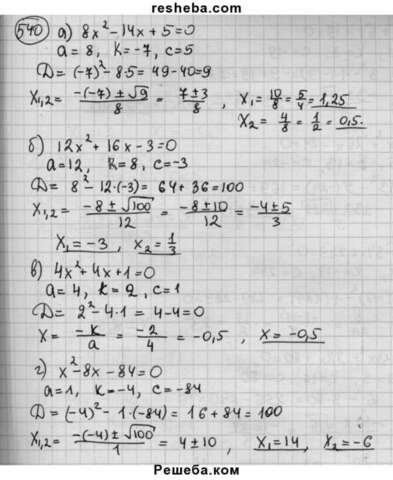 resheba.com
540 а) 8x² - 14x + 5 = 0
a = 8, k = -7, c = 5
D = (-7)² - 8·5 = 49 - 40 = 9
X₁,₂ = (-(-7) ± √9)/8 = (7 ± 3)/8 , X₁ = 10/8 = 5/4 = 1,25
X₂ = 4/8 = 1/2 = 0,5.
б) 12x² + 16x - 3 = 0
a = 12, k = 8, c = -3
D = 8² - 12·(-3) = 64 + 36 = 100
X₁,₂ = (-8 ± √100)/12 = (-8 ± 10)/12 = (-4 ± 5)/3
X₁ = -3 , x₂ = 1/3
в) 4x² + 4x + 1 = 0
a = 4, k = 2, c = 1
D = 2² - 4·1 = 4 - 4 = 0
X = -k/a = -2/4 = -0,5 , X = -0,5
г) x² - 8x - 84 = 0
a = 1, k = -4, c = -84
D = (-4)² - 1·(-84) = 16 + 84 = 100
X₁,₂ = (-(-4) ± √100)/1 = 4 ± 10 , X₁ = 14, X₂ = -6
Решеба.ком